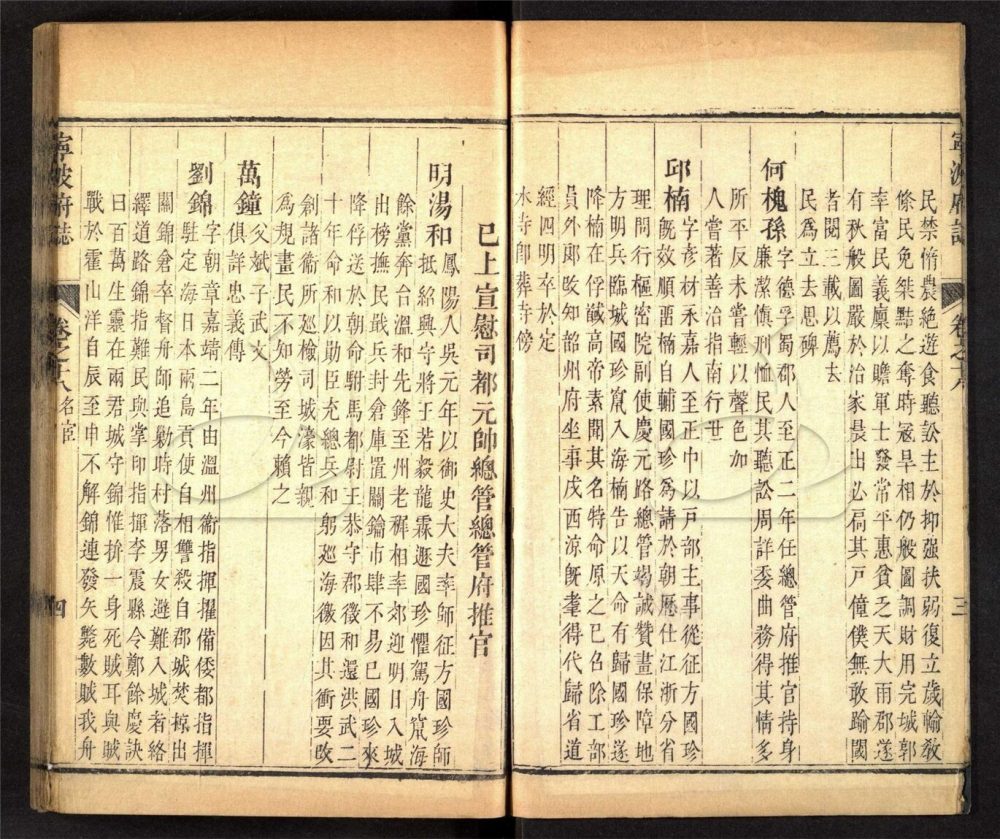 寧波府志
卷之十八
三
民禁惰農絶遊食聽訟主於抑强扶弱復立歲輸敎
條民免桀黠之奪時冦旱相仍般圖調財用完城郭
率富民義廩以贍軍士發常平惠貧乏天大雨郡遂
有秋般圖嚴於治家晨出必扃其戸僮僕無敢踰閾
者閲三載以薦去
民爲立去思碑
何槐孫字德孚蜀郡人至正二年任總管府推官持身
廉潔愼刑恤民其聽訟周詳委曲務得其情多
所平反未嘗輕以聲色加
人嘗著善治指南行世
邱楠字彦材永嘉人至正中以戸部主事從征方國珍
旣效順畱楠自輔國珍爲請於朝歴仕江浙分省
理問行樞密院副使慶元路總管竭誠贊畫保障地
方明兵臨城國珍竄入海楠告以天命有歸國珍遂
降楠在俘馘高帝素聞其名特命原之已召除工部
員外郎改知韶州府坐事戍西涼旣耄得代歸省道
經四明卒於定
水寺即葬寺傍
已上宣慰司都元帥總管總管府推官
明湯和鳳陽人吳元年以御史大夫率師征方國珍師
抵紹興守將王若毅龍霖遯國珍懼駕舟竄海
餘黨奔台溫和先鋒至州老稚相率郊迎明日入城
出榜撫民戢兵封倉庫置關鑰市肆不易已國珍來
降俘送於朝命駙馬都尉王恭守郡徵和還洪武二
十年命和以勛臣充總兵和躬廵海徼因其衝要改
創諸衞所廵檢司城濠皆親
爲規畫民不知勞至今賴之
萬鐘父斌子武文
俱詳忠義傳
劉錦字朝章嘉靖二年由溫州衞指揮擢備倭都指揮
駐定海日本兩島貢使自相讐殺自郡城焚椋出
關錦倉卒督舟師追勦時村落男女避難入城者絡
繹道路錦指難民與掌印指揮李震縣令鄭餘慶訣
曰百萬生靈在兩君城守錦惟拚一身死賊耳與賊
戰於霍山洋自辰至申不解錦連發矢斃數賊我舟
寧波府誌
卷之十八
名宦
四